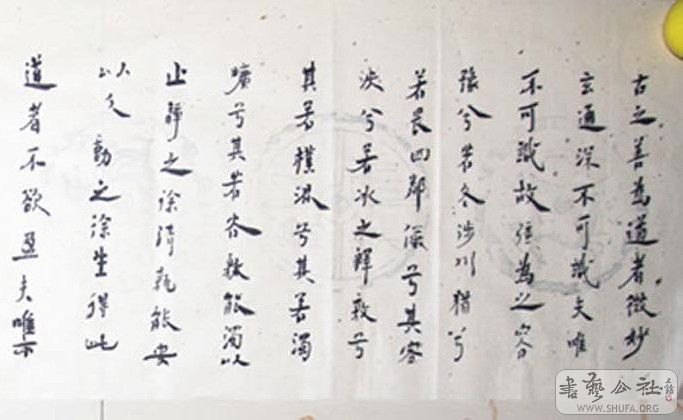 古之善為道者微妙
玄通深不可識夫唯
不可識故強為之容
豫兮若冬涉川猶兮
若畏四鄰儼兮其容
渙兮若冰之釋敦兮
其若樸混兮其若濁
曠兮其若谷孰能濁以
止靜之徐清孰能安
以久動之徐生得此
道者不欲盈夫唯不
書藝公社
WWW.SHUFA.ORG